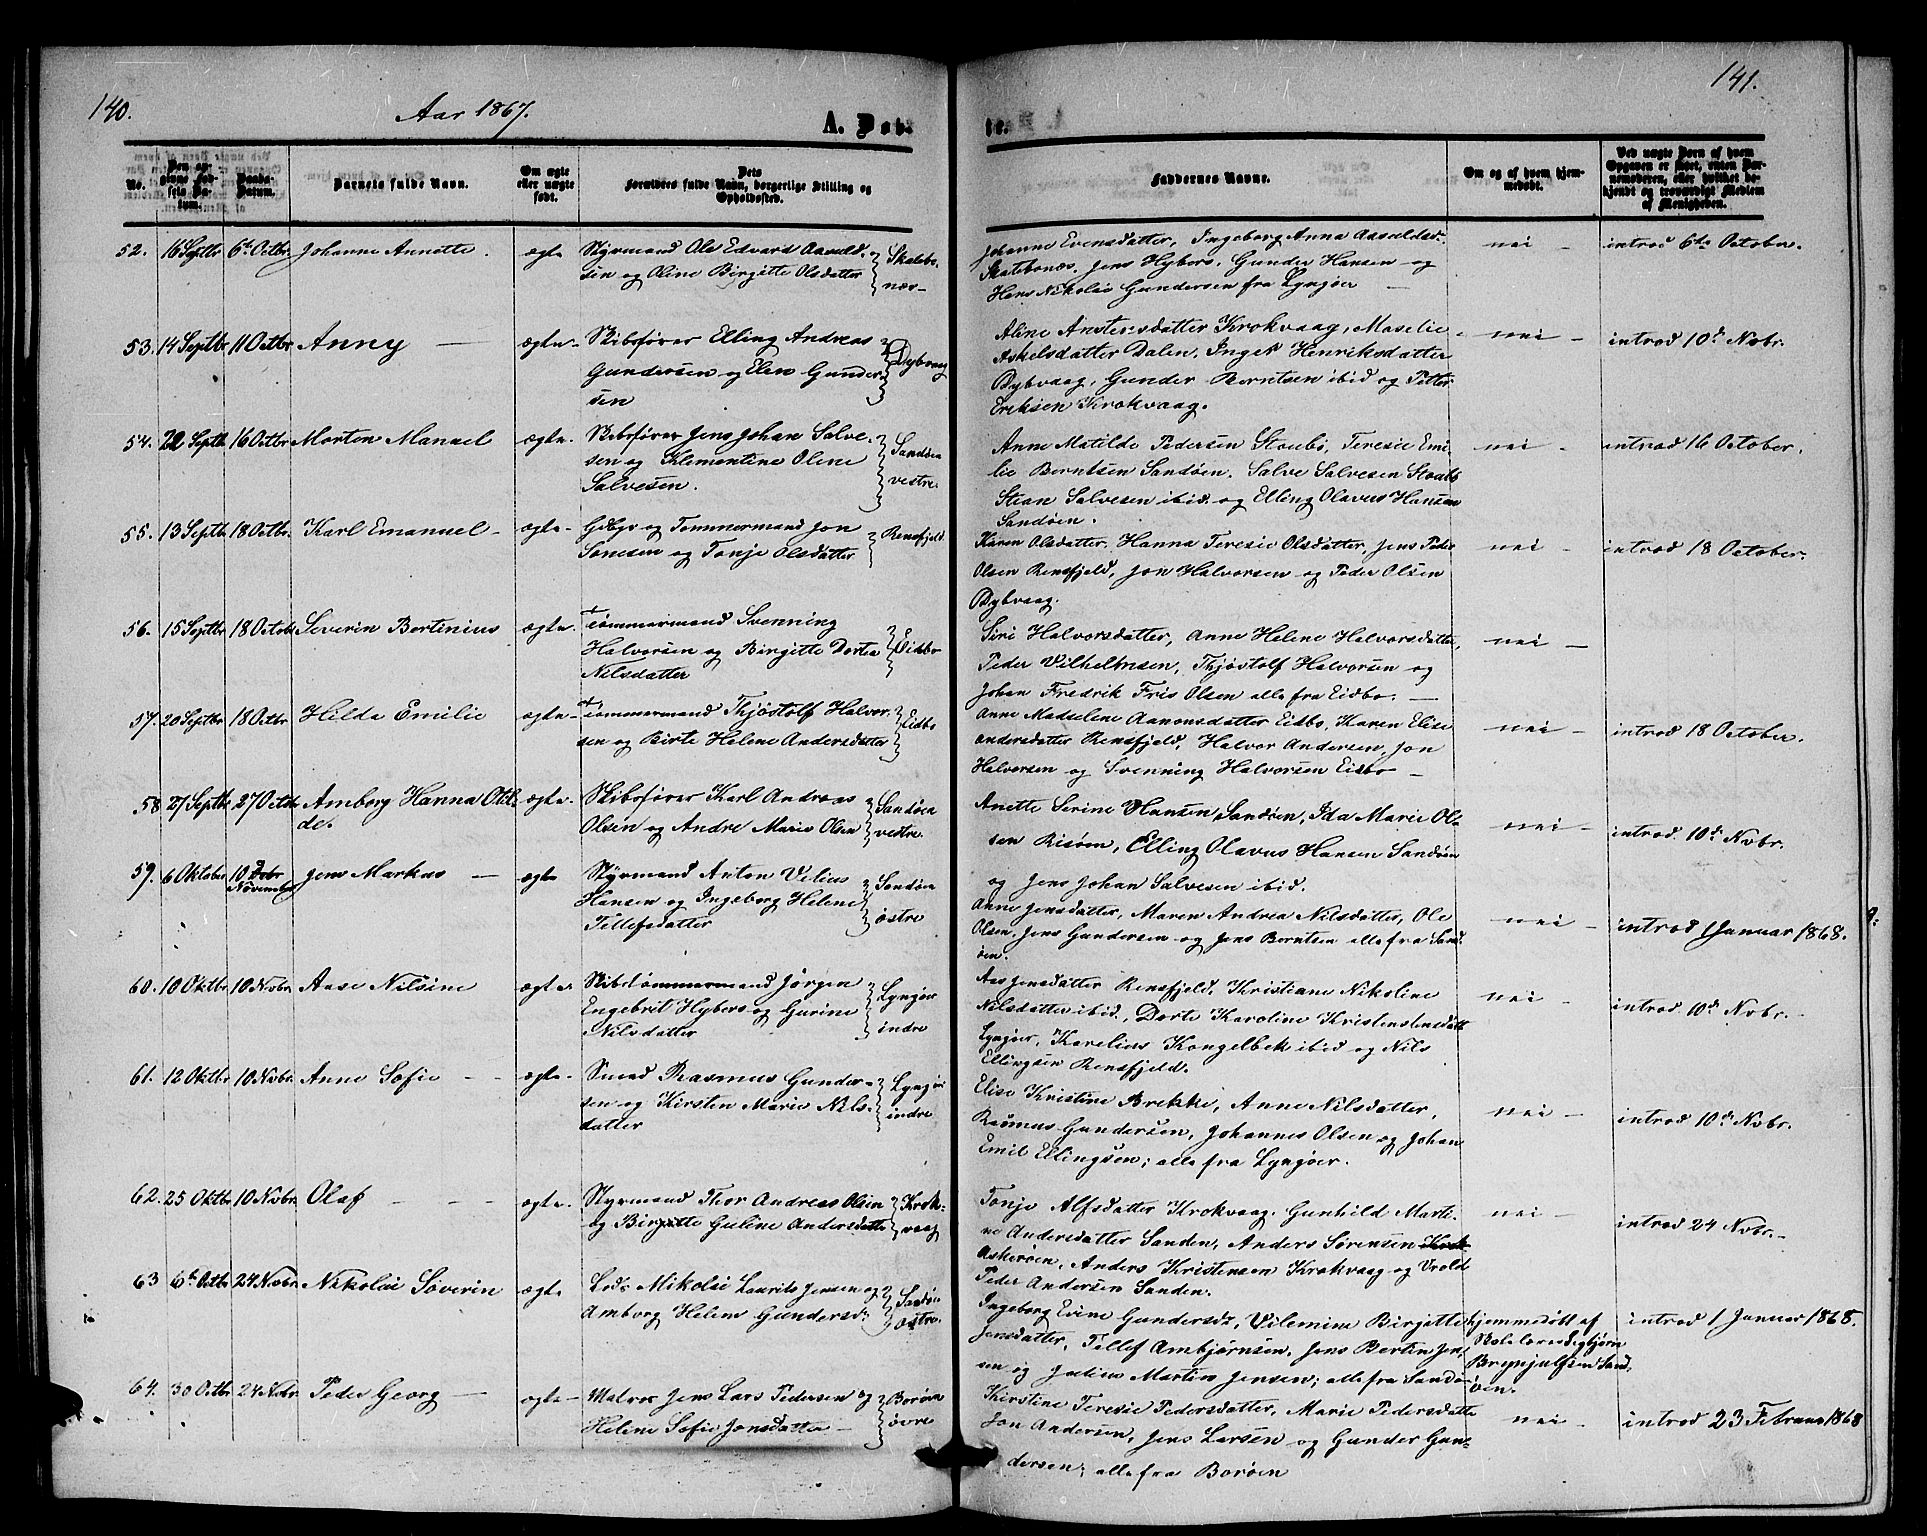 140.
Aar 1867.
A. Døb-
te.
141.
No.
Den an-
givne Fød-
sels Da-
tum.
Daabs-
Datum.
Barnets fulde Navn.
Om ægte
eller uægte
født.
Dets
Forældres fulde Navn, borgerlige Stilling og
Opholdssted.
Faddernes Navne.
Om og af hvem hjem-
medøbt.
Ved uægte Børn af hvem
Opgaven er skeet, enten Bar-
nemoderen, eller hvilket be-
kjendt og troværdigt Medlem
af Menigheden.
52. 16 Septbr 6te Octbr. Johanne Annette. ægte Styrmand Ole Edvard Aasuld-
sen og Oline Birgitte Olsdatter
Skalebo-
næs-
Johanne Evensdatter, Ingeborg Anna Aasuldsdr.
Skatebonæs, Jens Hybers, Gunder Hansen og
Hans Nikolai Gundersen fra Lyngøer
nei - introd 6te October.
53. 14 Septbr 11 Octbr Anny - ægte- Skibsfører Elling Andreas
Gundersen og Elen Gunder-
sen
Dybvaag
Aline Anstensdatter Krokvaag, Maselie
Askelsdatter Dalen, Inger Henriksdatter
Dybvaag, Gunder Berntsen ibid og Petter
Eriksen Krokvaag.
nei - introd 10d Nvbr.
54. 22 Septb. 16 Octbr Morten Manuel ægte. Skibsfører Jens Johan Salve-
sen og Klementine Olene
Salvesen.
Sandøen
vestre
Anne Matilde Pedersen Staubø, Teresie Emi-
lie Berntsen Sandøen. Salve Salvesen Staubø
Stean Salvesen ibid. og Elling Olavus Hansen
Sandøen.
nei - introd 16 October.
55. 13 Septbr 18 Octbr. Karl Emanuel - ægte- Gdbgr og Tømmermand Jon
Sønesen og Tonje Olsdatter
Rensfjeld
Karen Olsdatter, Hanna Teresie Olsdatter, Jens Peder
Olsen Rensfjeld, Jon Halvorsen og Peder Olsen
Dybvaag.
nei - introd 18 October.
56. 15 Septbr 18 Octbr Severin Bertinius ægte. Tømmermand Svenning
Halvorsen og Birgitte Dortea
Nilsdatter
Eidbo
Siri Halvorsdatter, Anne Helene Halvorsdatter,
Peder Vilhelmsen, Thjøstolf Halvorsen og
Johan Fredrik Fris Olsen alle fra Eidbo. -
nei -
57. 20 Septbr 18 Octbr Hilda Emilie ægte- Tømmermand Thjøstolf Halvor-
sen og Birte Helene Andersdatter
Eidbo
Anne Madselene Aanonsdatter Eidbo, Karen Elise
Andersdatter Rensfjeld, Halvor Andersen, Jon
Halvorsen og Svenning Halvorsen Eidbo -
nei - introd 18 October.
58 27 Septbr 27 Octbr Amborg Hanna Otil-
de.
ægte. Skibsfører Karl Andreas
Olsen og Andre Marie Olsen
Sandøen
vestre.
Anette Serine Hansen, Sandøen, Ida Marie Ol-
sen Risøen, Elling Olavus Hansen Sandøen
og Jens Johan Salvesen ibid.
nei - introd. 10d Nvbr.
59. 6 Oktober 10
November
Jens Markus - ægte Styrmand Anton Vilius
Hansen og Ingeborg Helene
Tellefsdatter
Sandøen
østre
Anne Jensdatter, Maren Andrea Nilsdatter, Ole
Olsen, Jens Gundersen og Jens Berntsen alle fra Sand-
øen.
nei - introd 1 Januar 1868.
60. 10 Oktbr 10 Nvbr. Aase Nilsine ægte. Skibstømmermand Jørgen
Engebret Hybers og Gurine
Nilsdatter
Lyngøer
indre
Aas Jensdatter Rensfjeld, Kristiane Nikoline
Nilsdatter ibid., Dorte Karoline Kristenstensdatt
Lyngøer, Karelius Kongelbek ibid og Nils
Ellingsen Rensfjeld.
nei - introd. 10d Nvbr. -
61. 12 Oktbr. 10 Nvbr. Anne Sofie - - ægte- Smed Rasmus Gunder-
sen og Kirsten Marie Nils-
datter
Lyngør
indre
Elise Kristine Brekke, Anne Nilsdatter,
Rasmus Gundersen, Johannes Olsen og Johan
Emil Ellingsen; alle fra Lyngøer.
nei - introd 10d Nvbr.
62. 25 Oktbr. 10 Nvbr. Olaf - - ægte. Styrmand Thor Andreas Olsen
og Birgitte Guline Andersdatter
Krok-
vaag
Tonje Alfsdatter Krokvaag. Gunhild Marte-
ne Andersdatter Sanden, Anders Sørensen
Askerøen, Anders Kristensen Krokvaag og Vrold
Peder Andersen Sanden.
nei - introd 24 Nvbr. -
63 6te Octb 24 Nvbr. Nikolai Severin ægte Lods Mikolai Laurits Jensen og
Amborg Helene Gundersd:
Sandøen
østre.
Ingeborg Evine Gundersdr, Vilemine Birgitte
Jensdatter, Tellef Ambjørnsen, Jens Bertin Jen-
sen og Julius Martin Jensen; alle fra Sandø-
hjemmedøbt af
Skolelærer Sigbjørn
Brynjulfsen Sand-
øen.
introd 1 Januar 1868.
64. 30 Octbr 24 Nvbr. Peder Georg - ægte- Matros Jens Lars Pedersen og
Helene Sofie Jonsdatter -
Borøen
øvre
Kirstine Teresie Pedersdatter, Marie Pedersdatte
Jon Andersen, Jens Larsen og Gunder Gun-
dersen; alle fra Borøen
nei - introd 23 Februar 1868